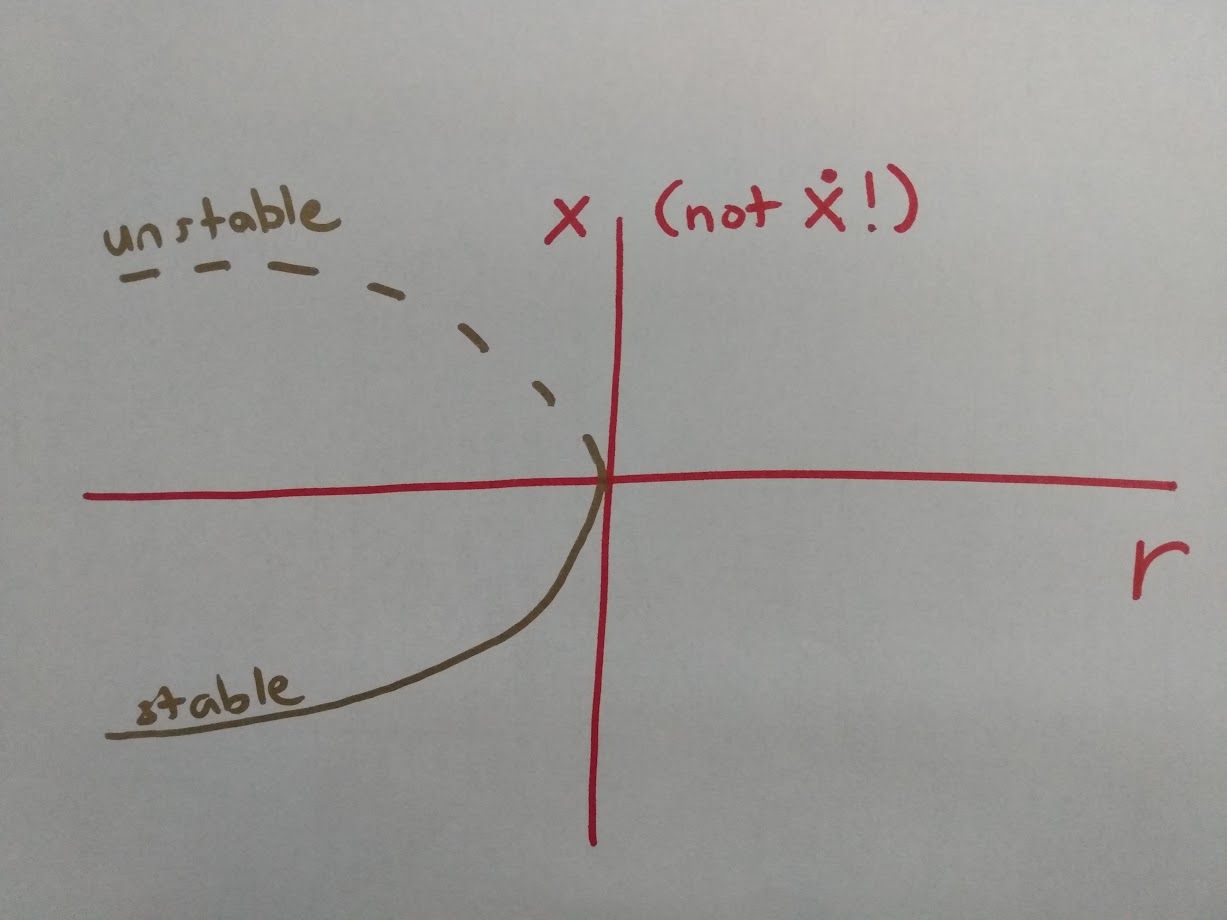 unstable
x (not ẋ!)
r
stable